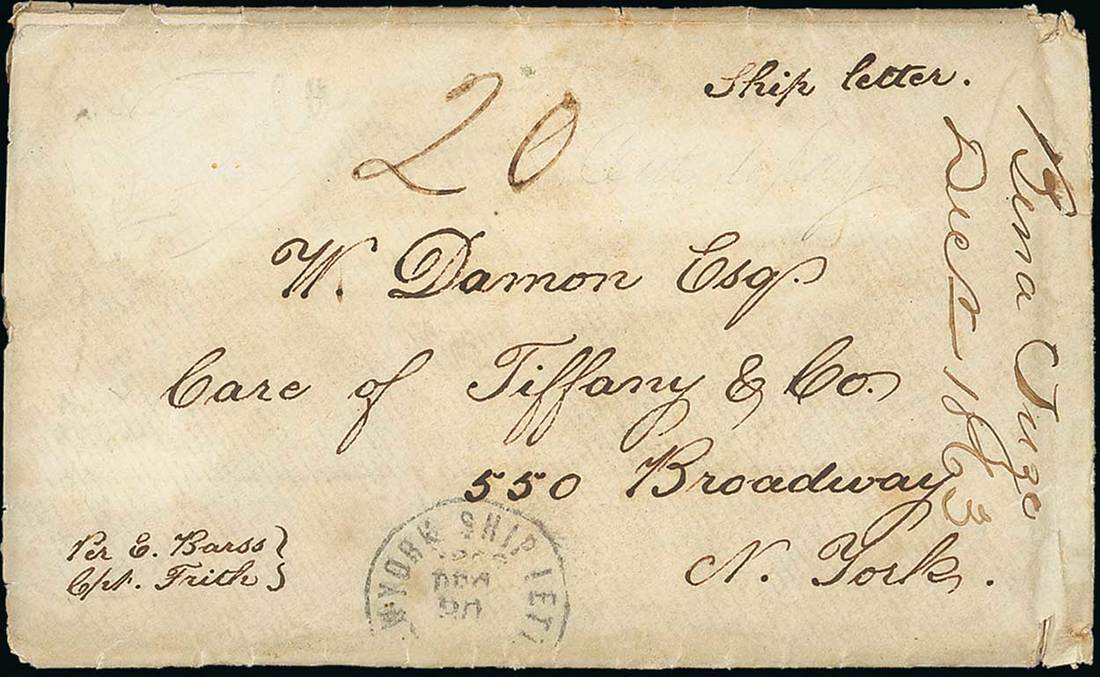 Ship letter.
20
W. Damon Esq.
Care of Tiffany & Co.
550 Broadway
N. York.
Per E. Barss
Cpt. Frith
YORK SHIP LET
DEC
1863